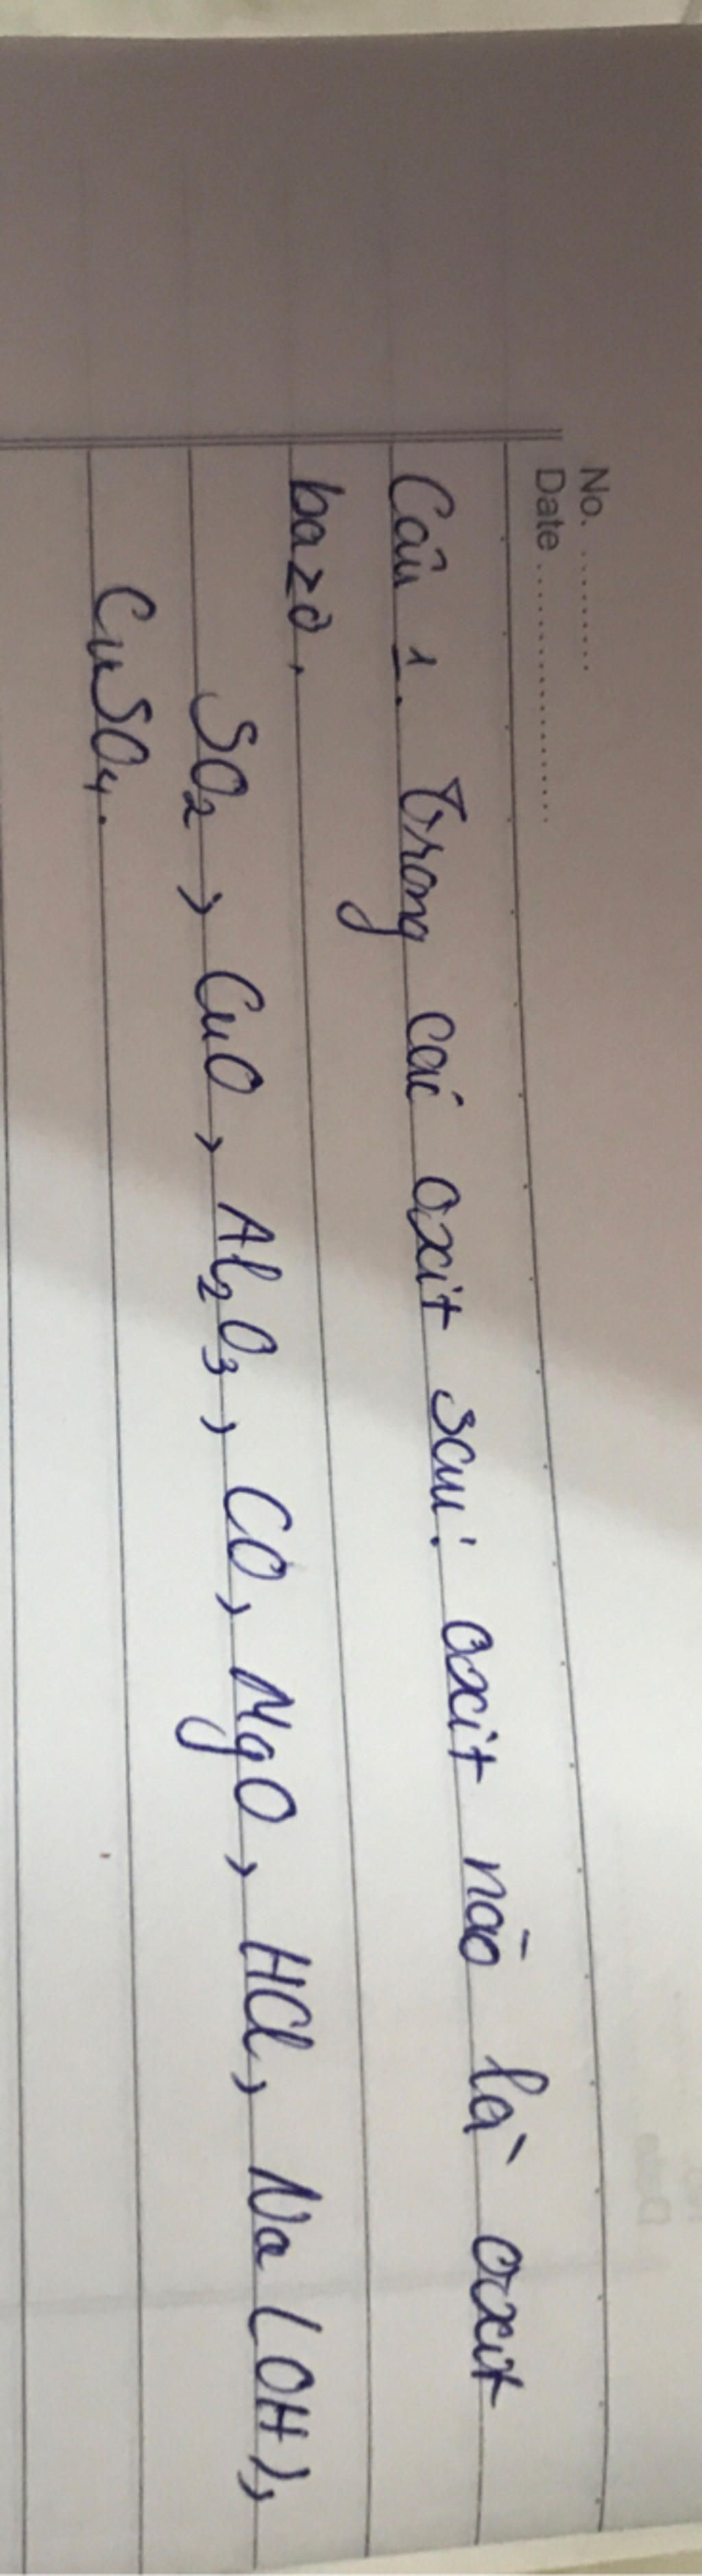 No. .........
Date ....................
Câu 1. Trong các oxit sau: oxit nào là oxit
bazơ.
SO₂, CuO, Al₂O₃, CO, MgO, HCl, Na(OH),
CuSO₄.